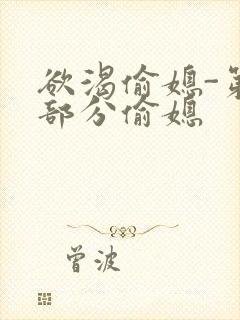 欲渴偷媳-第
部分偷媳
曾波